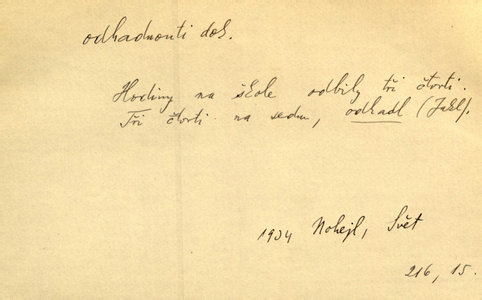 odhadnouti dok.
Hodiny na škole odbily tři čtvrti.
Tři čtvrti na sedm, odhadl (Jakl).
1934 Nohejl, Svět
216, 15.